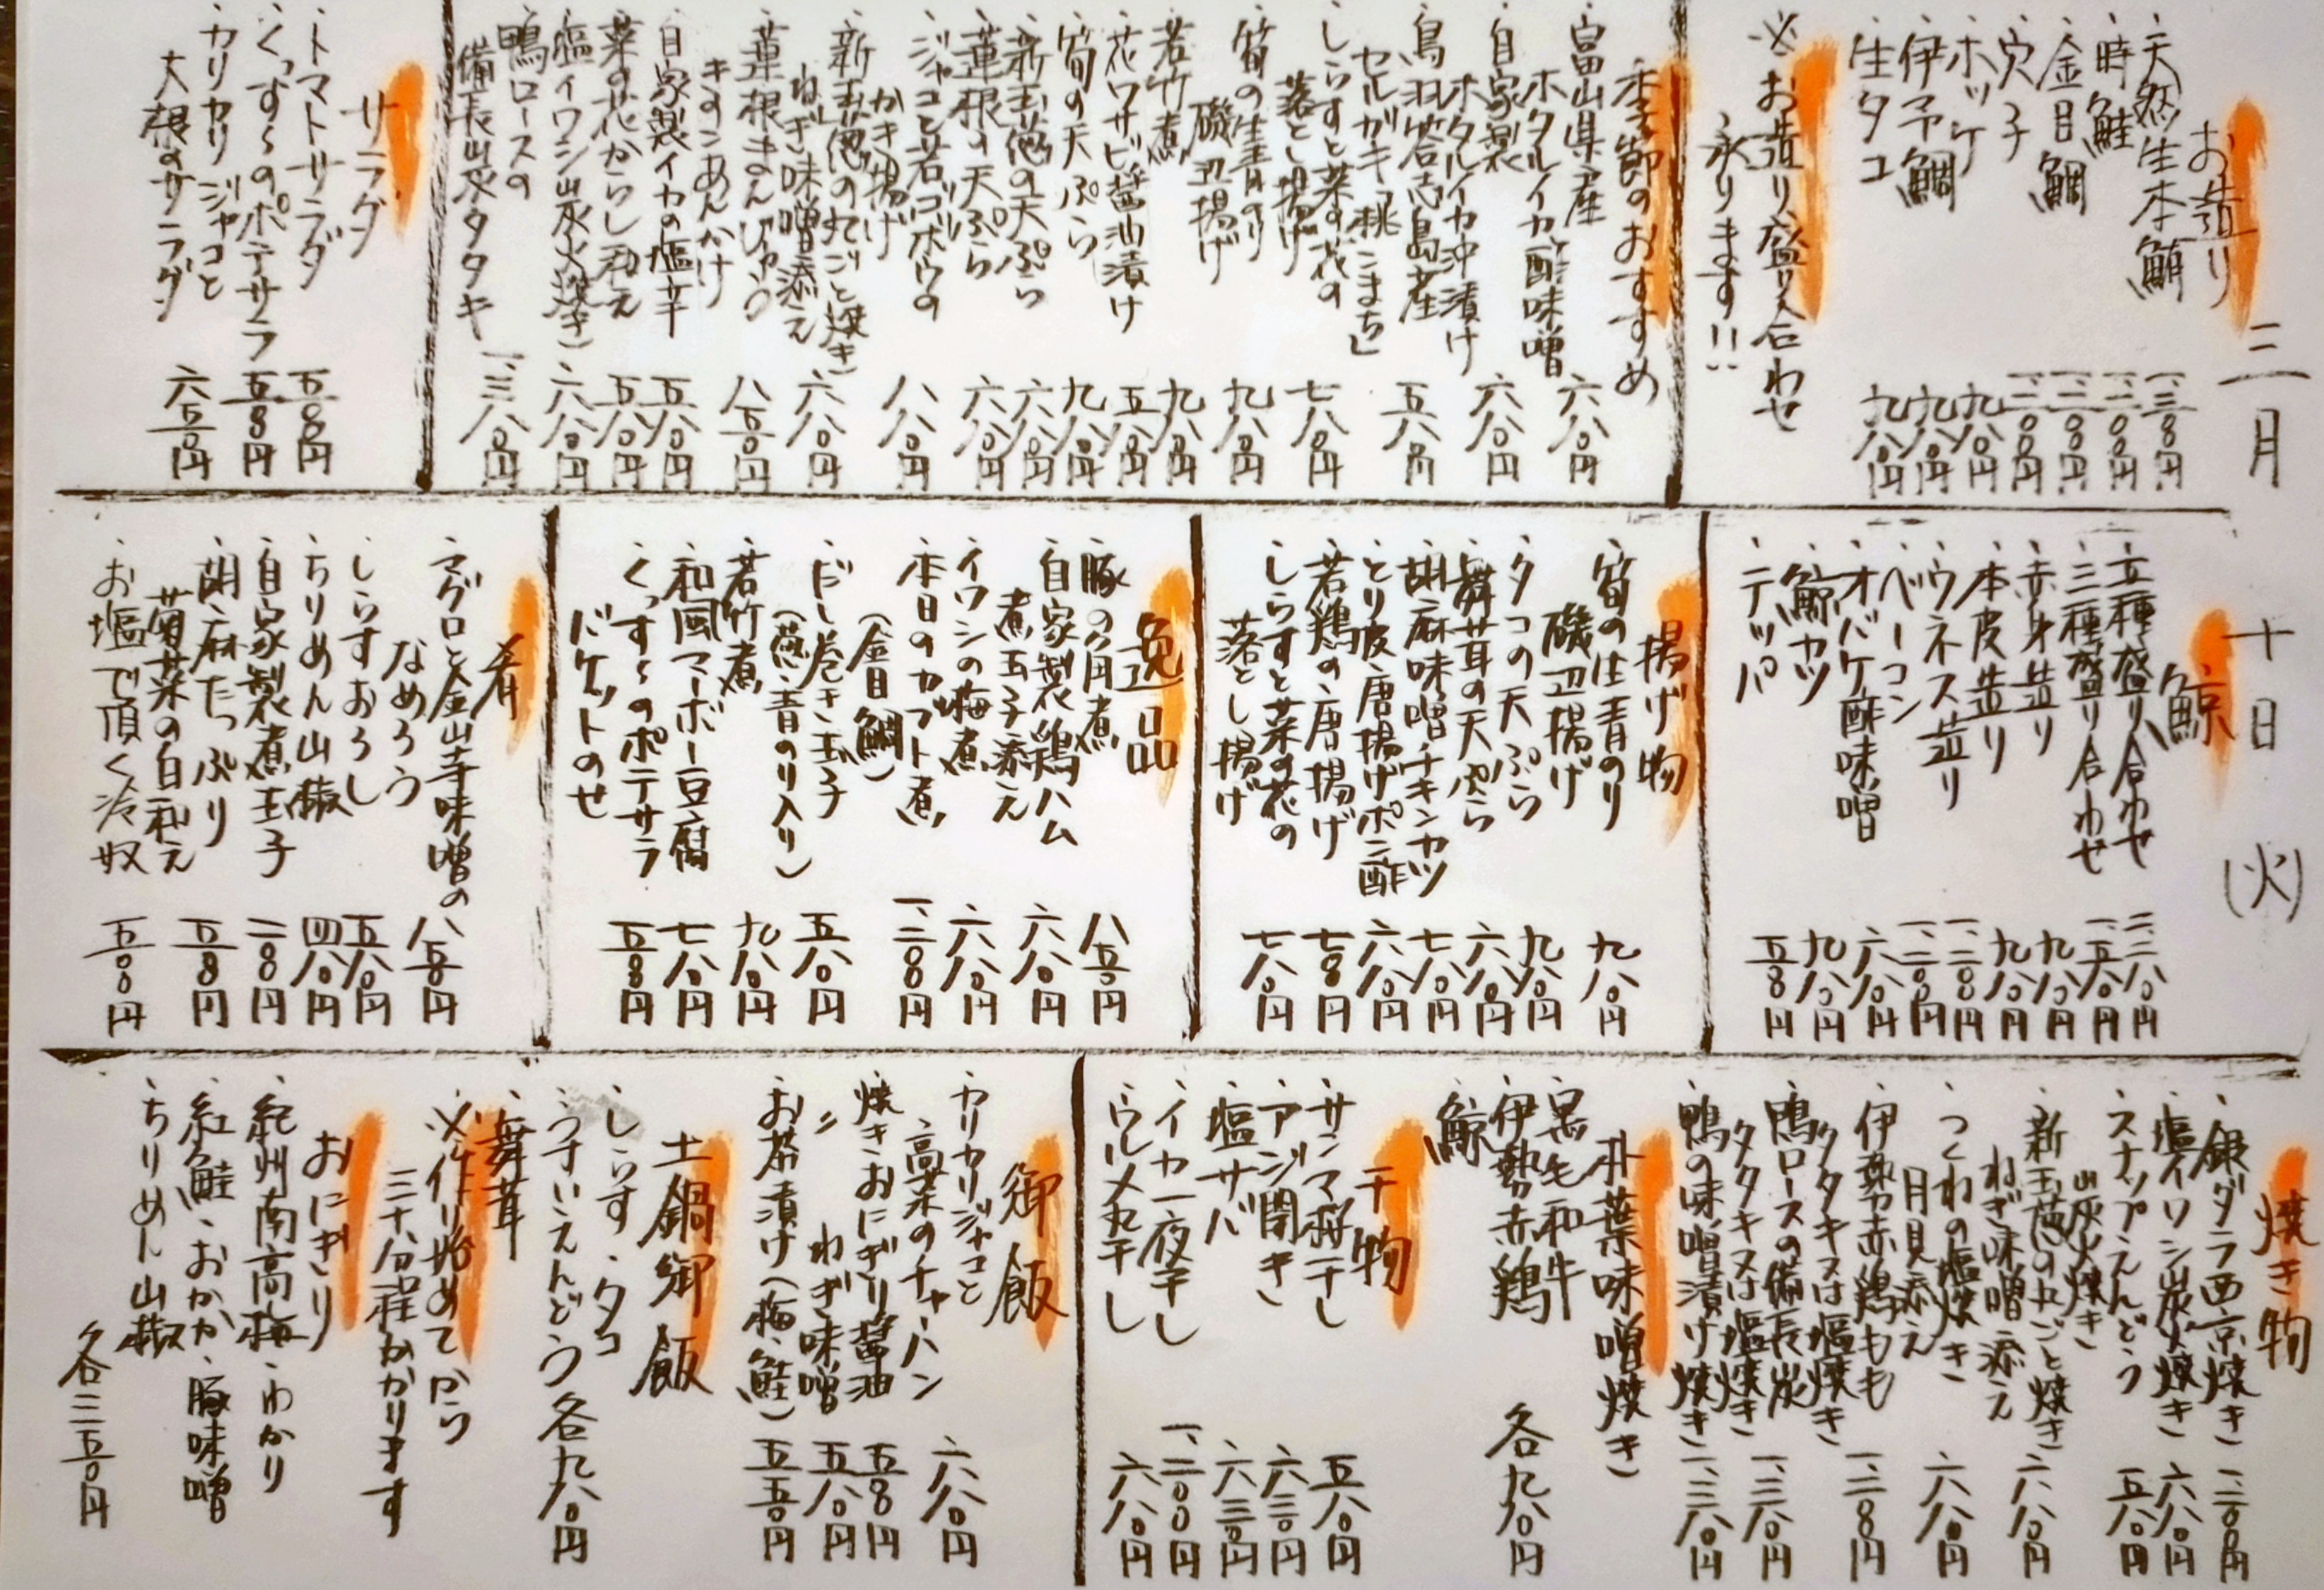 三月
十日
(火)
お造り
・天然生本鮪
・時鮭
・金目鯛
・穴子
・ホッケ 九八〇円
・伊予鯛 九八〇円
・生タコ 九八〇円
※お造り盛り合わせ
承ります!!
季節のおすすめ
・富山県産
ホタルイカ酢味噌 六八〇円
・自家製
ホタルイカ沖漬け 六八〇円
・鳥羽答志島産
セルガキ「桃こまち」 五八〇円
・しらすと菜の花の
落とし揚げ 七八〇円
・筍の生青のり
磯辺揚げ 九八〇円
・若竹煮 九八〇円
・花ワサビ醤油漬け 五八〇円
・筍の天ぷら 九八〇円
・新玉葱の天ぷら 六八〇円
・蓮根の天ぷら 六八〇円
・ジャコと若ゴボウの
かき揚げ 八八〇円
・新玉葱の丸ごと焼き
ねぎ味噌添え 六八〇円
・蓮根まんじゅう
きのこあんかけ 八五〇円
・自家製イカの塩辛 五八〇円
・菜の花からし和え 五八〇円
・塩イワシ炭火焼き 六八〇円
・鴨ロースの
備長炭タタキ 一、三八〇円
サラダ
・トマトサラダ 五五〇円
・くっすぅのポテサラ 五五〇円
・カリカリジャコと
大根のサラダ 六五〇円
鯨
・五種盛り合わせ
・三種盛り合わせ
・赤身造り 九八〇円
・本皮造り 九八〇円
・ウネス造り
・ベーコン
・オバケ酢味噌 六八〇円
・鯨カツ 九八〇円
・テッパ 五五〇円
揚げ物
・筍の生青のり
磯辺揚げ 九八〇円
・タコの天ぷら 九八〇円
・舞茸の天ぷら 六八〇円
・胡麻味噌チキンカツ 七八〇円
・とり皮唐揚げポン酢 六八〇円
・若鶏の唐揚げ
・しらすと菜の花の
落とし揚げ 七八〇円
逸品
・豚の角煮 八五〇円
・自家製鶏ハム
煮玉子添え 六八〇円
・イワシの梅煮 六八〇円
・本日のカブト煮
(金目鯛)
・だし巻き玉子 五八〇円
(葱・青のり入り)
・若竹煮 九八〇円
・和風マーボー豆腐 七八〇円
・くっすぅのポテサラ
バケットのせ
肴
・マグロと金山寺味噌の
なめろう 八五〇円
・しらすおろし 五八〇円
・ちりめん山椒 四八〇円
・自家製煮玉子
・胡麻たっぷり
菊菜の白和え 五五〇円
・お塩で頂く冷奴 五〇〇円
焼き物
・銀ダラ西京焼き
・塩イワシ炭火焼き 六八〇円
・スナップえんどう
炭火焼き 五八〇円
・新玉葱の丸ごと焼き
ねぎ味噌添え 六八〇円
・つくねの塩焼き
月見添え 六八〇円
・伊勢赤鶏もも
タタキ又は塩焼き
・鴨ロースの備長炭
タタキ又は塩焼き 一、三八〇円
・鴨の味噌漬け焼き 一、三八〇円
朴葉味噌焼き
・黒毛和牛
・伊勢赤鶏
・鯨
各九八〇円
干物
・サンマ桜干し 五八〇円
・アジ開き 六三〇円
・塩サバ 六三〇円
・イカ一夜干し
・ウルメ丸干し 六八〇円
御飯
・カリカリジャコと
高菜のチャーハン 六八〇円
・焼きおにぎり醤油
・〃 ねぎ味噌 五八〇円
・お茶漬け(梅・鮭) 五五〇円
土鍋御飯
・しらす・タコ
・うすいえんどう
・舞茸
各九八〇円
※作り始めてから
三十分程かかります
おにぎり
・紀州南高梅・わかり
・紅鮭・おかか・豚味噌
・ちりめん山椒
各三五〇円